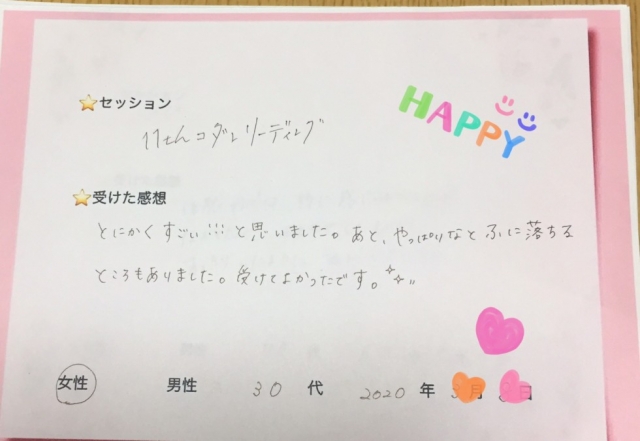 ⭐セッション
HAPPY
⭐受けた感想
とにかくすごい!!!と思いました。あと、やっぱりなとふに落ちる
ところもありました。受けてよかったです。
女性 男性 30 代 2020 年 月 日